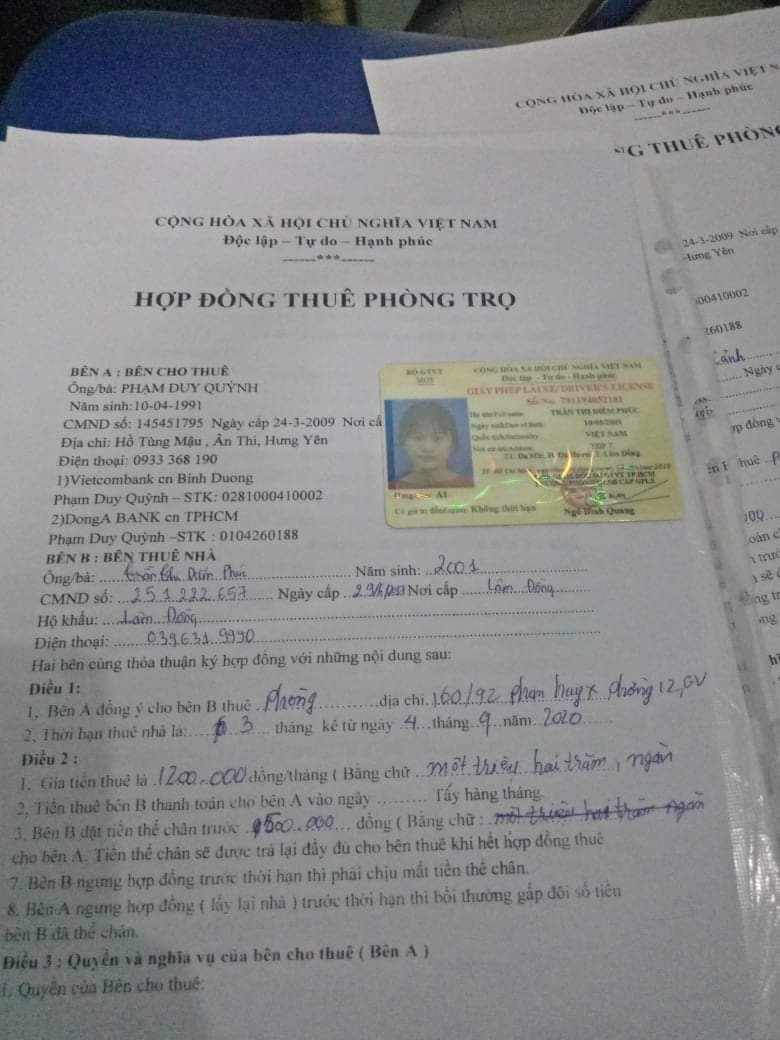 CỘNG HÒA XÃ HỘI CHỦ NGHĨA VIỆT N
Độc lập – Tự do – Hạnh phúc
G THUÊ PHÒNG
24-3-2009 Nơi cấp
Hưng Yên
00410002
260188
Cảnh
Ngày
CỘNG HÒA XÃ HỘI CHỦ NGHĨA VIỆT NAM
Độc lập – Tự do – Hạnh phúc
------***------
HỢP ĐỒNG THUÊ PHÒNG TRỌ
BÊN A : BÊN CHO THUÊ
Ông/bà: PHẠM DUY QUỲNH
Năm sinh: 10-04-1991
CMND số: 145451795 Ngày cấp 24-3-2009 Nơi cấ
Địa chỉ: Hồ Tùng Mậu , Ân Thi, Hưng Yên
Điện thoại: 0933 368 190
1)Vietcombank cn Binh Duong
Phạm Duy Quỳnh – STK: 0281000410002
2)DongA BANK cn TPHCM
Phạm Duy Quỳnh –STK : 0104260188
BỘ GTVT
MOT
CỘNG HÒA XÃ HỘI CHỦ NGHĨA VIỆT NAM
Độc lập - Tự do - Hạnh phúc
GIẤY PHÉP LÁI XE/DRIVER'S LICENSE
Số/No: 791194052181
TRẦN THỊ DIỄM PHÚC
VIỆT NAM
Lâm Đồng
A1
Không thời hạn
Ngô Đình Quang
BÊN B : BÊN THUÊ NHÀ
Ông/bà: Trần Thị Diễm Phúc Năm sinh: 2001
CMND số: 251222657 Ngày cấp Nơi cấp Lâm Đồng
Hộ khẩu: Lâm Đồng
Điện thoại: 039631 9990
Hai bên cùng thỏa thuận ký hợp đồng với những nội dung sau:
Điều 1:
1. Bên A đồng ý cho bên B thuê phòng địa chỉ 160/92 phan huy x phường 12, GV
2. Thời hạn thuê nhà là: 3 tháng kể từ ngày 4 tháng 9 năm 2020
Điều 2 :
1. Gía tiền thuê là 1200.000 đồng/tháng ( Bằng chữ một triệu hai trăm ngàn
2. Tiền thuê bên B thanh toán cho bên A vào ngày ......... Tây hàng tháng.
3. Bên B đặt tiền thế chân trước 500.000 đồng ( Bằng chữ : một triệu hai trăm ngàn
cho bên A. Tiền thế chân sẽ được trả lại đầy đủ cho bên thuê khi hết hợp đồng thuê
7. Bên B ngưng hợp đồng trước thời hạn thì phải chịu mất tiền thế chân.
8. Bên A ngưng hợp đồng ( lấy lại nhà ) trước thời hạn thì bồi thường gấp đôi số tiền
bên B đã thế chân.
Điều 3 : Quyền và nghĩa vụ của bên cho thuê ( Bên A )
1. Quyền của Bên cho thuê: